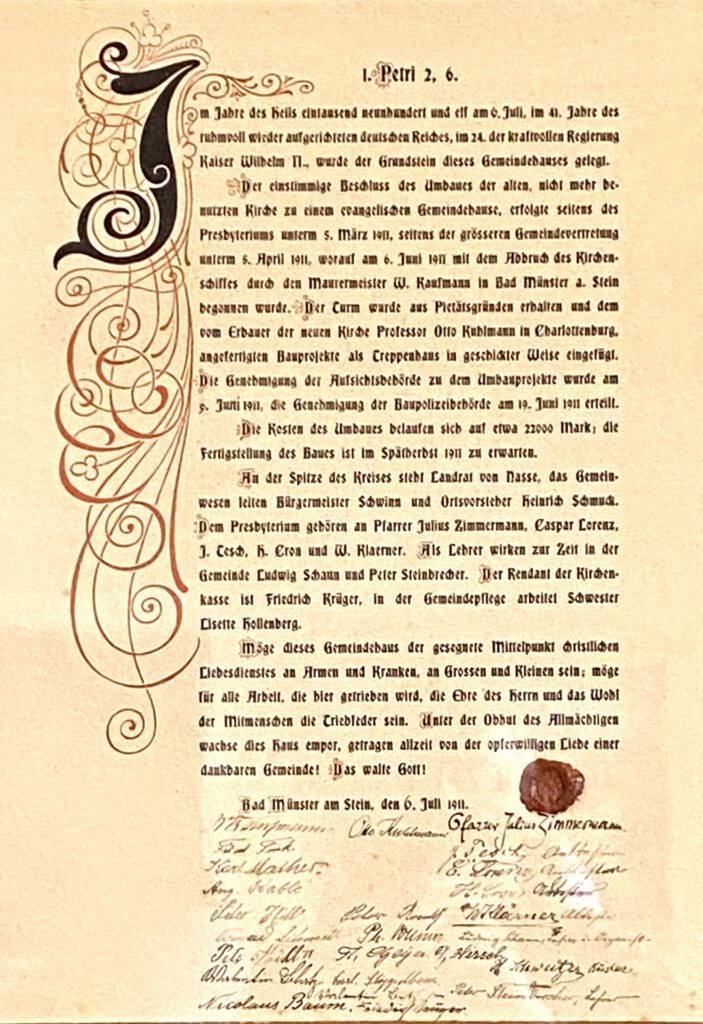 I. Petri 2, 6.
Im Jahre des Heils eintausend neunhundert und elf am 6. Juli, im 41. Jahre des
ruhmvoll wieder aufgerichteten deutschen Reiches, im 24. der kraftvollen Regierung
Kaiser Wilhelm II., wurde der Grundstein dieses Gemeindehauses gelegt.
Der einstimmige Beschluss des Umbaues der alten, nicht mehr be-
nutzten Kirche zu einem evangelischen Gemeindehause, erfolgte seitens des
Presbyteriums unterm 5. März 1911, seitens der grösseren Gemeindevertretung
unterm 5. April 1911, worauf am 6. Juni 1911 mit dem Abbruch des Kirchen-
schiffes durch den Maurermeister W. Kaufmann in Bad Münster a. Stein
begonnen wurde. Der Turm wurde aus Pietätsgründen erhalten und dem
vom Erbauer der neuen Kirche Professor Otto Kuhlmann in Charlottenburg,
angefertigten Bauprojekte als Treppenhaus in geschickter Weise eingefügt.
Die Genehmigung der Aufsichtsbehörde zu dem Umbauprojekte wurde am
9. Juni 1911, die Genehmigung der Baupolizeibehörde am 19. Juni 1911 erteilt.
Die Kosten des Umbaues belaufen sich auf etwa 22000 Mark; die
Fertigstellung des Baues ist im Spätherbst 1911 zu erwarten.
An der Spitze des Kreises steht Landrat von Nasse, das Gemein-
wesen leiten Bürgermeister Schwinn und Ortsvorsteher Heinrich Schmuck.
Dem Presbyterium gehören an Pfarrer Julius Zimmermann, Caspar Lorenz,
J. Tesch, H. Cron und W. Klaerner. Als Lehrer wirken zur Zeit in der
Gemeinde Ludwig Schaun und Peter Steinbrecher. Der Rendant der Kirchen-
kasse ist Friedrich Krüger, in der Gemeindepflege arbeitet Schwester
Lisette Hollenberg.
Möge dieses Gemeindehaus der gesegnete Mittelpunkt christlichen
Liebesdienstes an Armen und Kranken, an Grossen und Kleinen sein; möge
für alle Arbeit, die hier getrieben wird, die Ehre des Herrn und das Wohl
der Mitmenschen die Triebfeder sein. Unter der Obhut des Allmächtigen
wachse dies Haus empor, getragen allzeit von der opferwilligen Liebe einer
dankbaren Gemeinde! Das walte Gott!
Bad Münster am Stein, den 6. Juli 1911.
Otto Kuhlmann Pfarrer Julius Zimmermann
J. Tesch
Karl Mather. C. Lorenz
Aug. H. Cron
Peter Peter W Klärner
Ph.
H. Geyer Schweitzer
Peter Steinbrecher, Lehrer
Nicolaus Baum. Friedrich Krüger.